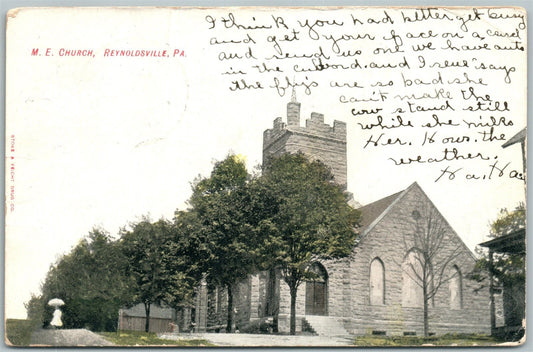 M. E. CHURCH, REYNOLDSVILLE, PA.
I think you had better get busy
and get your face on a card
and send us one we have auts
in the cuboard. and I says
the flys are so bad she
can't make the
cow stand still
while she milks
Her. Hows. the
weather.
Ha. Ha.
STOKE & FEICHT DRUG CO.